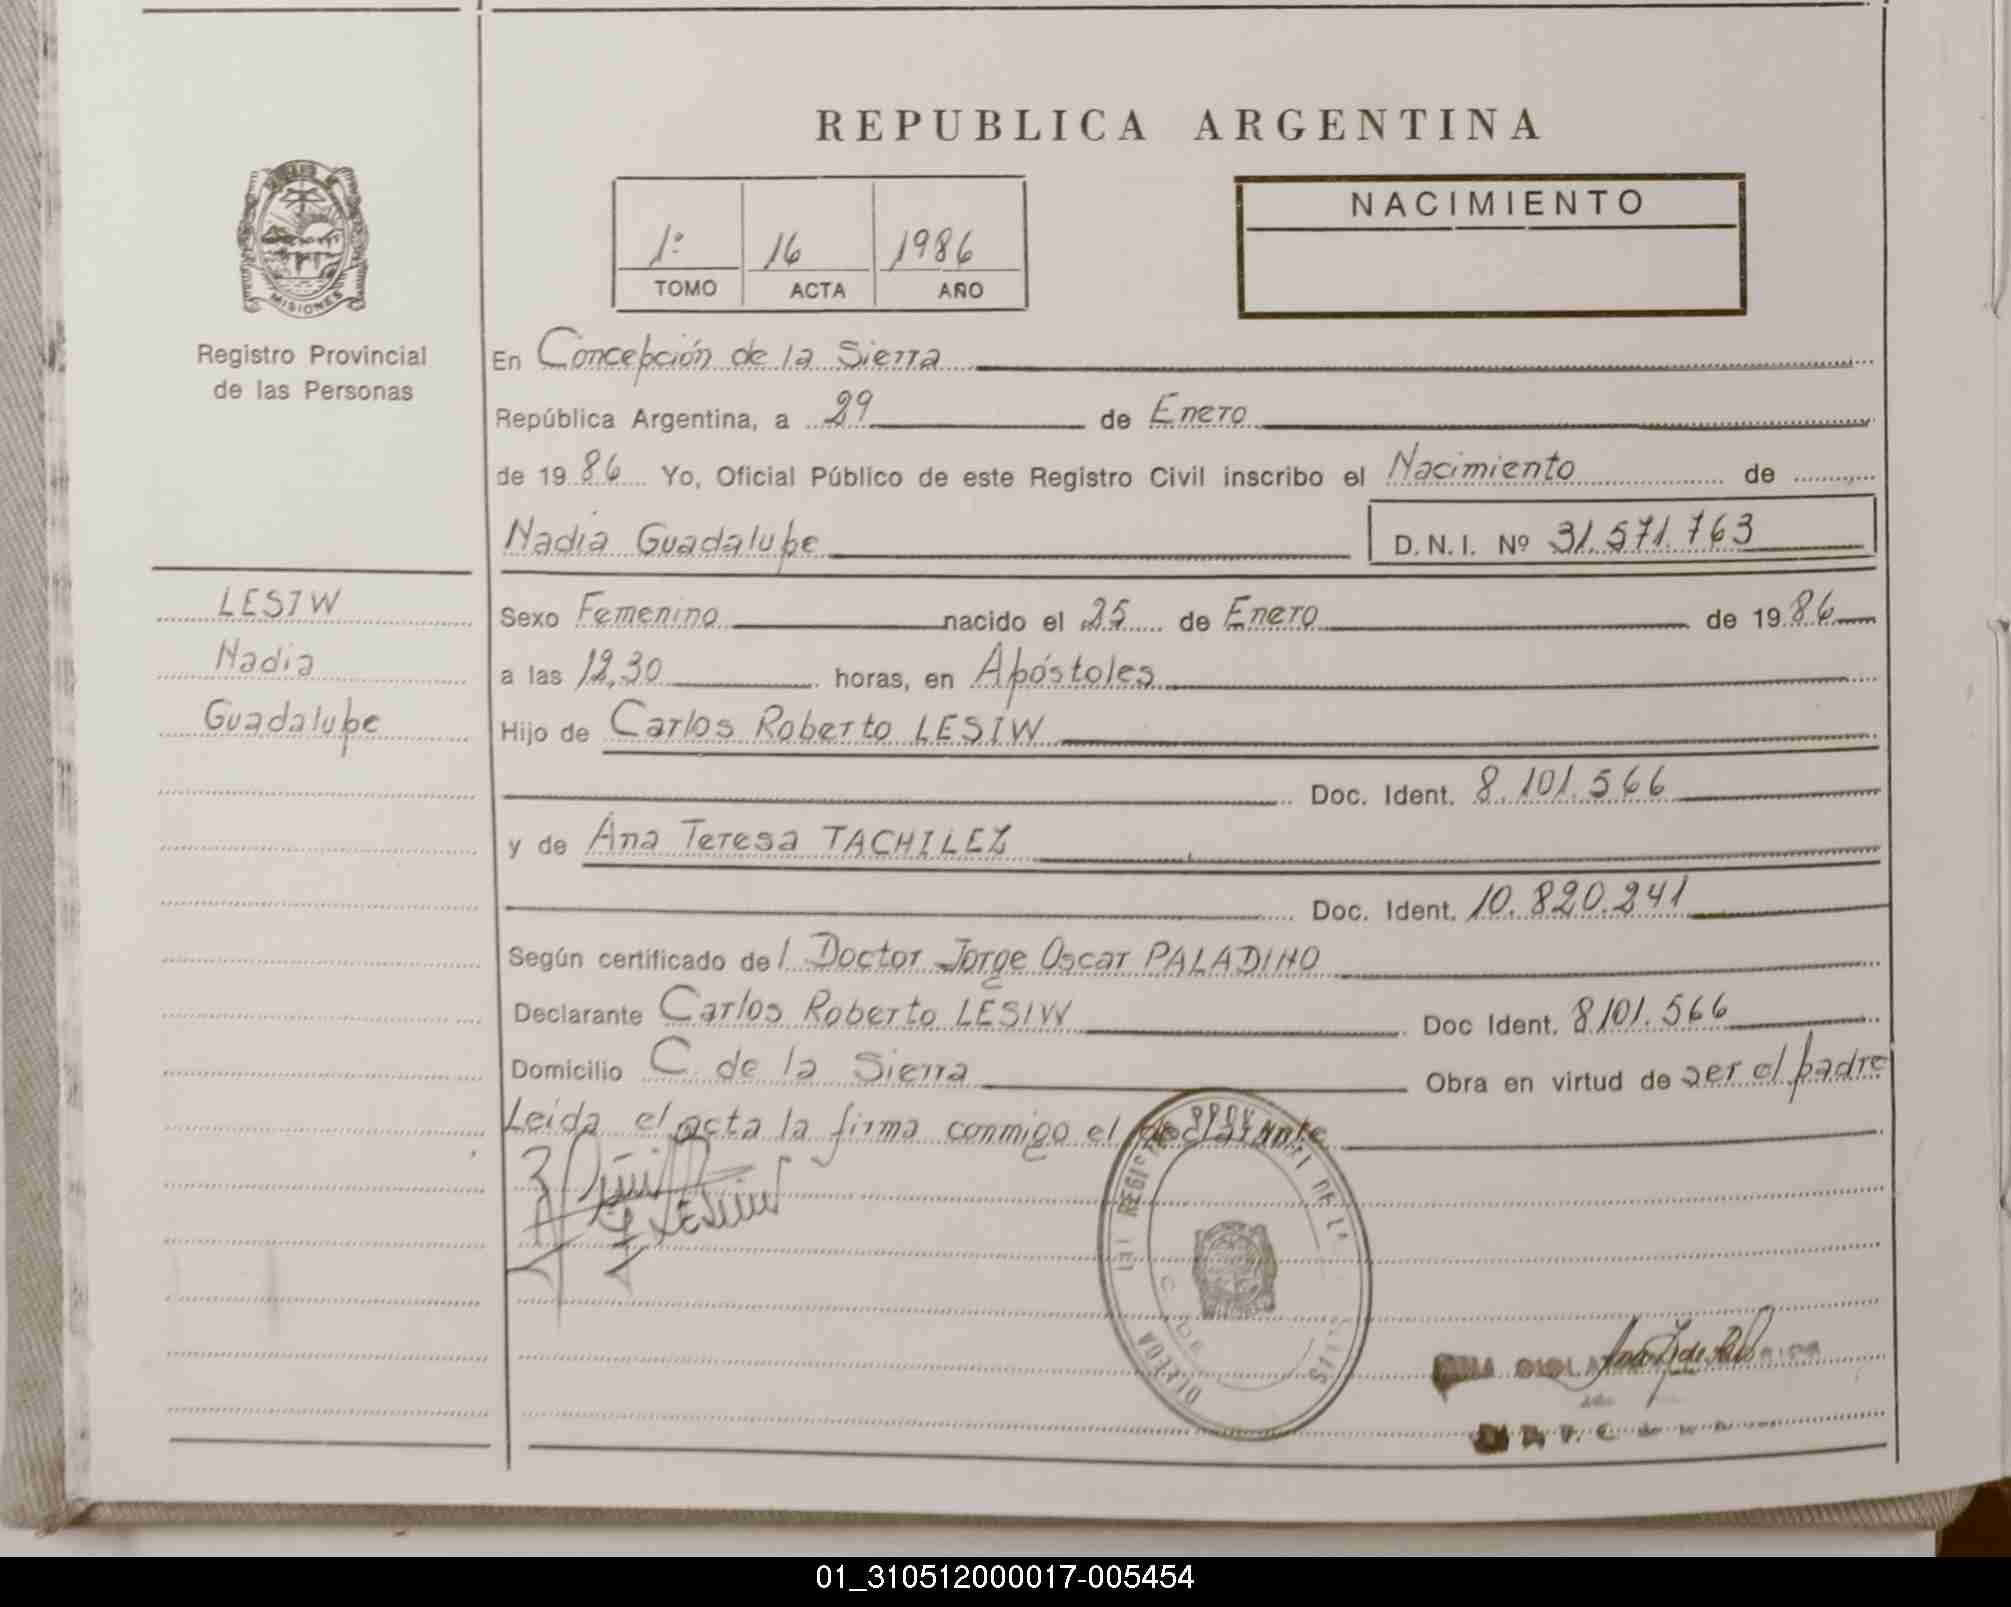 REPUBLICA ARGENTINA
1º 16 1986
TOMO ACTA AÑO
NACIMIENTO
MISIONES
Registro Provincial
de las Personas
En Concepción de la Sierra
República Argentina, a 29 de Enero
de 1986 Yo, Oficial Público de este Registro Civil inscribo el Nacimiento de
Nadia Guadalupe D.N.I. Nº 31.571.763
LESIW
Nadia
Guadalupe
Sexo Femenino nacido el 25 de Enero de 1986
a las 12,30 horas, en Apóstoles
Hijo de Carlos Roberto LESIW
Doc. Ident. 8.101.566
y de Ana Teresa TACHILEZ
Doc. Ident. 10.820.241
Según certificado del Doctor Jorge Oscar PALADINO
Declarante Carlos Roberto LESIW Doc Ident. 8101.566
Domicilio C. de la Sierra Obra en virtud de ser el padre
Leída el acta la firma conmigo el declarante
01_310512000017-005454